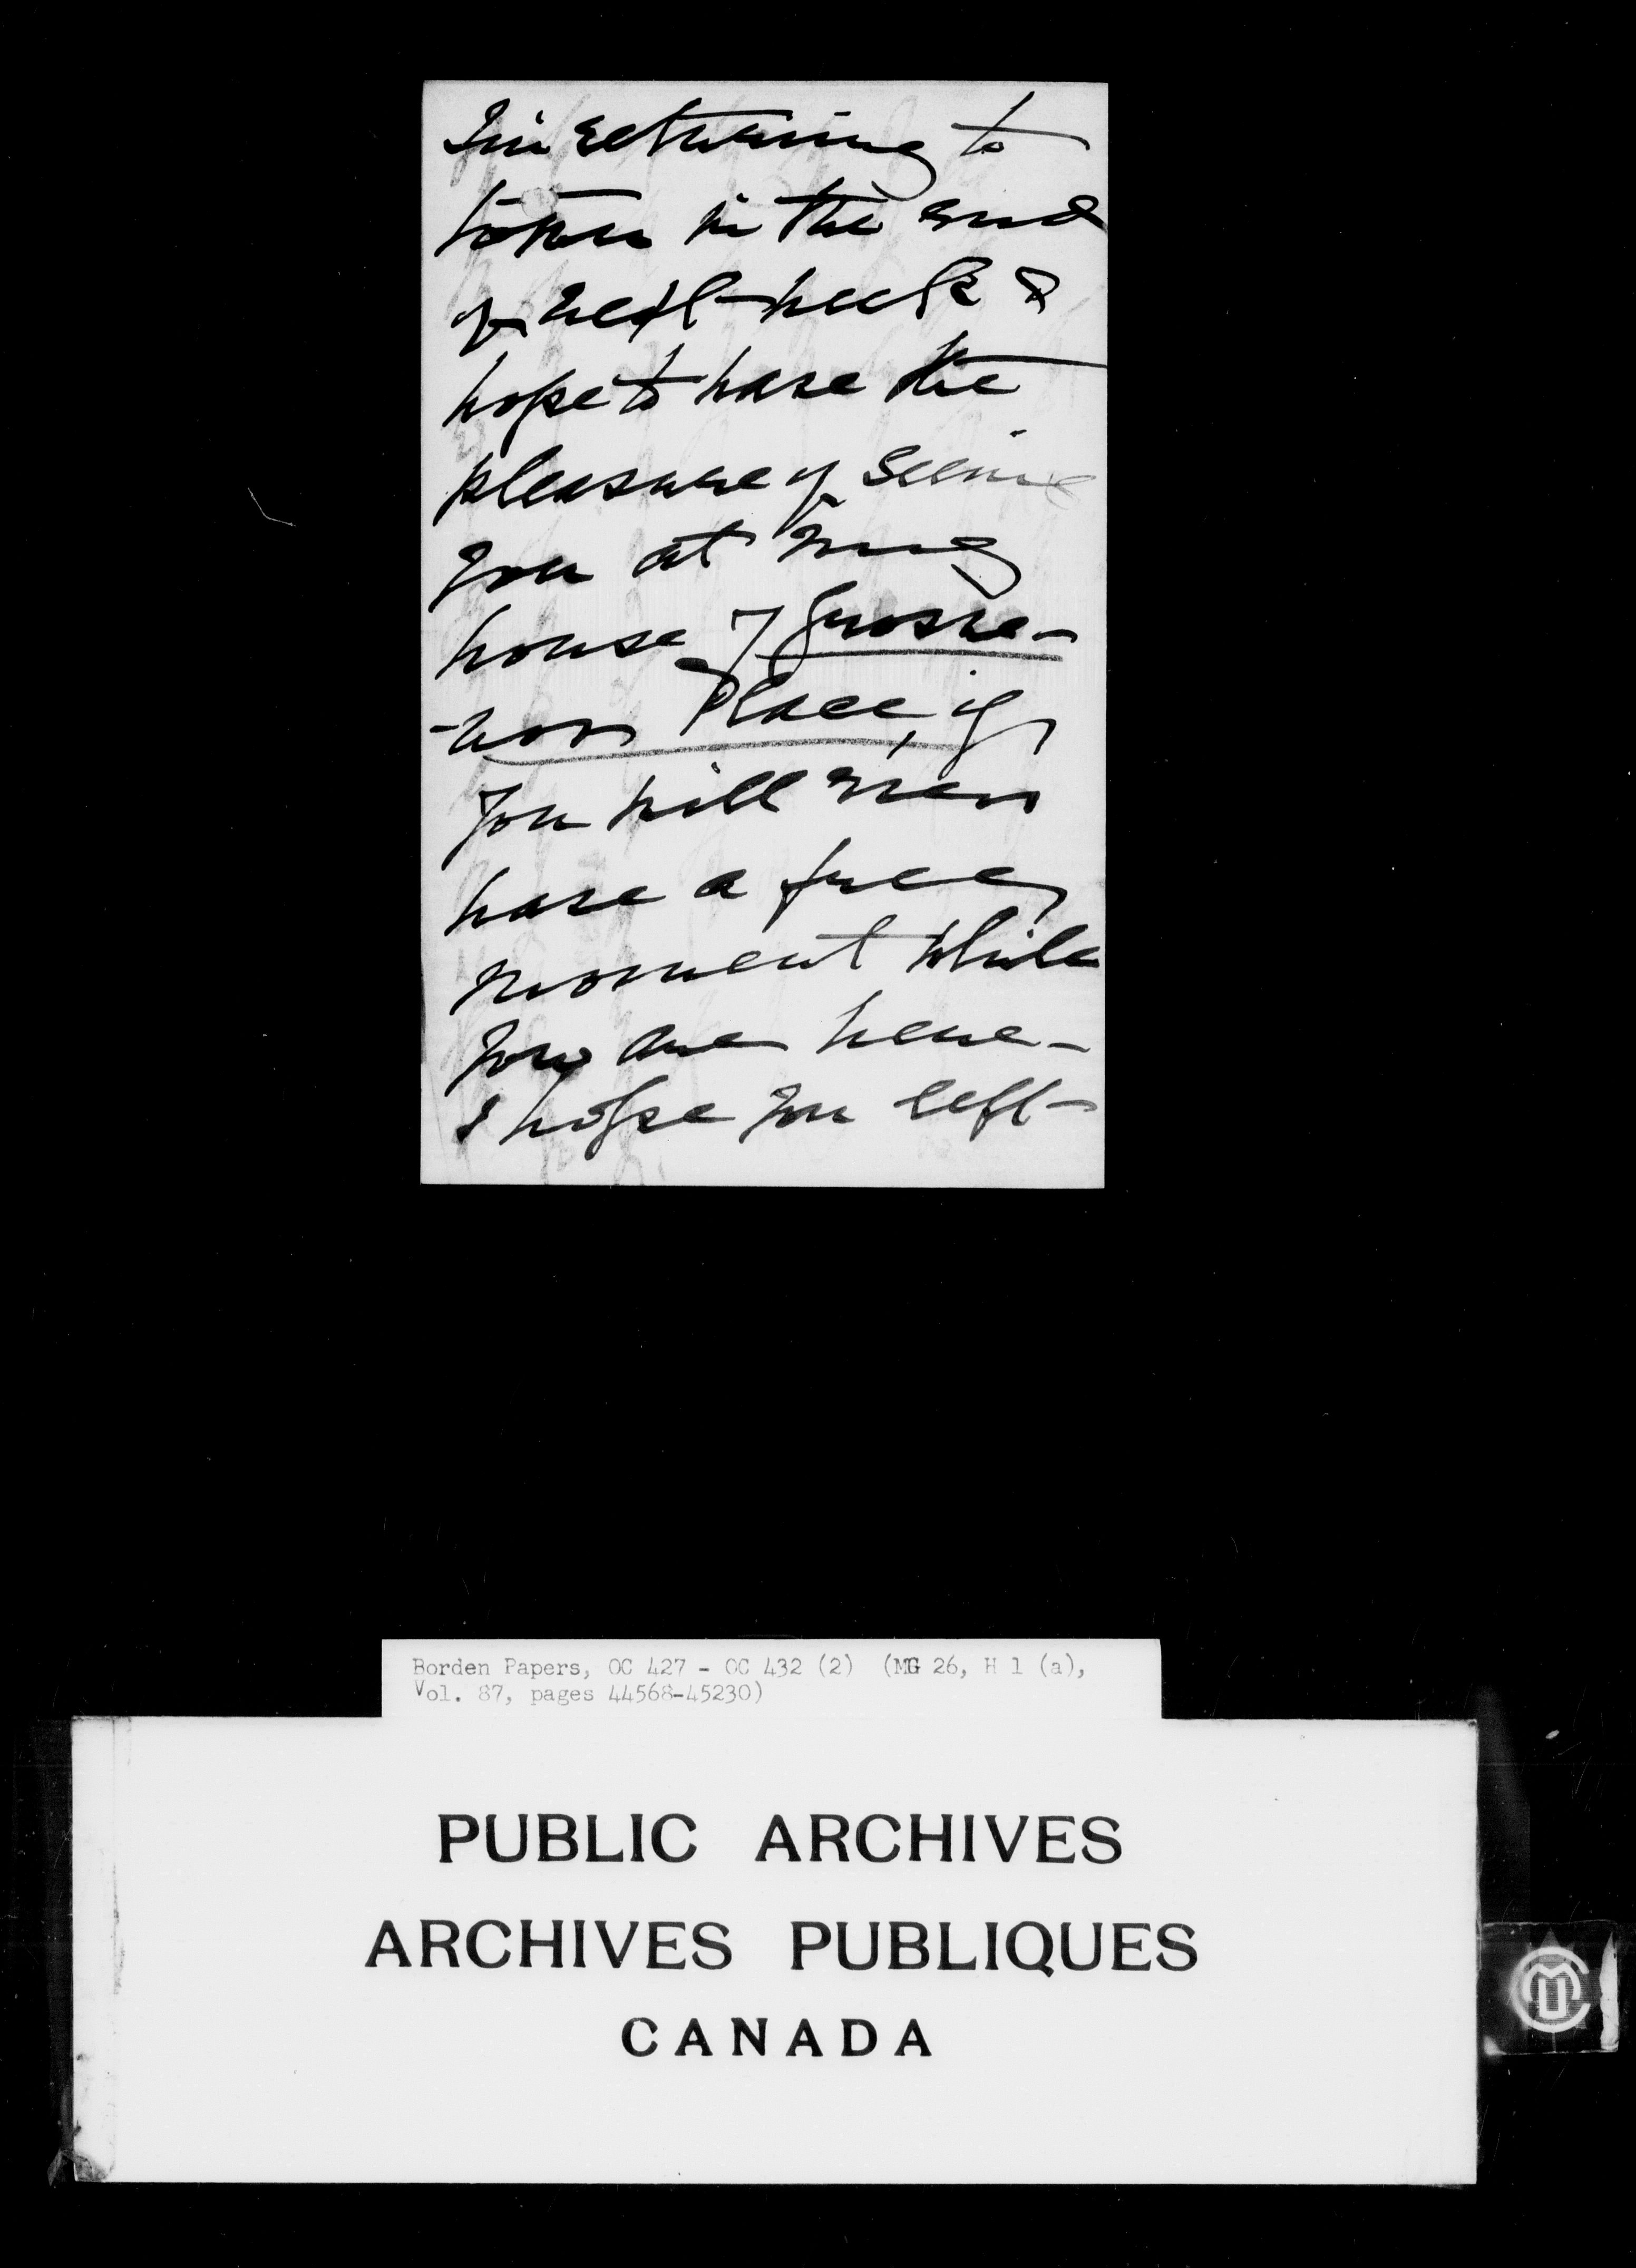 I'm returning to
town in the end
of next week &
hope to have the
pleasure of seeing
you at my
house 7 Grosve-
-nor Place, if
you will even
have a free
moment while
you are here -
I hope you left
Borden Papers, OC 427 - OC 432 (2) (MG 26, H 1 (a),
Vol. 87, pages 44568-45230)
PUBLIC ARCHIVES
ARCHIVES PUBLIQUES
CANADA